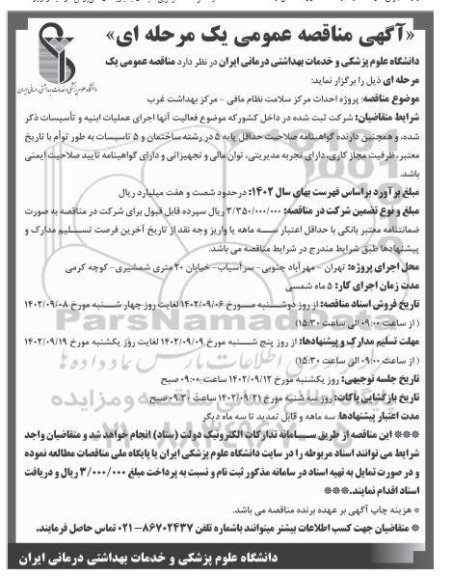 «آگهی مناقصه عمومی یک مرحله ای»
دانشگاه علوم پزشکی و خدمات بهداشتی درمانی ایران در نظر دارد مناقصه عمومی یک
مرحله ای ذیل را برگزار نماید:
موضوع مناقصه: پروژه احداث مرکز سلامت نظام مافی - مرکز بهداشت غرب
شرایط متقاضیان: شرکت ثبت شده در داخل کشور که موضوع فعالیت آنها اجرای عملیات ابنیه و تأسیسات ذکر
شده، و همچنین دارنده گواهینامه صلاحیت حداقل پایه ۵ در رشته ساختمان و ۵ تاسیسات به طور توأم با تاریخ
معتبر، ظرفیت مجاز کاری، دارای تجربه مدیریتی، توان مالی و تجهیزاتی و دارای گواهینامه تایید صلاحیت ایمنی
باشد.
مبلغ برآورد بر اساس فهرست بهای سال ۱۴۰۲: در حدود شصت و هفت میلیارد ریال
مبلغ و نوع تضمین شرکت در مناقصه: ۳/۳۵۰/۰۰۰/۰۰۰ ریال سپرده قابل قبول برای شرکت در مناقصه به صورت
ضمانتنامه معتبر بانکی با حداقل اعتبار سه ماهه یا واریز وجه نقد از تاریخ آخرین فرصت تسلیم مدارک و
پیشنهادها طبق شرایط مندرج در شرایط مناقصه می باشد.
محل اجرای پروژه: تهران - مهرآباد جنوبی - سرآسیاب - خیابان ۲۰ متری شمشیری - کوچه کرمی
مدت زمان اجرای کار: ۵ ماه شمسی
تاریخ فروش اسناد مناقصه: از روز دوشنبه مورخ ۱۴۰۲/۰۹/۰۶ لغایت روز چهار شنبه مورخ ۱۴۰۲/۰۹/۰۸
( از ساعت ۰۹:۰۰ الی ساعت ۱۵:۳۰)
مهلت تسلیم مدارک و پیشنهادها: از روز پنج شنبه مورخ ۱۴۰۲/۰۹/۰۹ لغایت روز یکشنبه مورخ ۱۴۰۲/۰۹/۱۹
( از ساعت ۰۹:۰۰ الی ساعت ۱۵:۳۰)
تاریخ جلسه توجیهی: روز یکشنبه مورخ ۱۴۰۲/۰۹/۱۲ ساعت ۰۹:۰۰ صبح
تاریخ بازگشایی پاکات: روز سه شنبه مورخ ۱۴۰۲/۰۹/۲۱ ساعت ۰۹:۳۰ صبح
مدت اعتبار پیشنهادها: سه ماهه و قابل تمدید تا سه ماه دیگر
*** این مناقصه از طریق سامانه تدارکات الکترونیک دولت (ستاد) انجام خواهد شد و متقاضیان واجد
شرایط می توانند اسناد مربوطه را در سایت دانشگاه علوم پزشکی ایران یا پایگاه ملی مناقصات مطالعه نموده
و در صورت تمایل به تهیه اسناد در سامانه مذکور ثبت نام و نسبت به پرداخت مبلغ ۳/۰۰۰/۰۰۰ ریال و دریافت
اسناد اقدام نمایند.***
* هزینه چاپ آگهی بر عهده برنده مناقصه می باشد.
* متقاضیان جهت کسب اطلاعات بیشتر میتوانند باشماره تلفن ۸۶۷۰۲۴۳۷-۰۲۱ تماس حاصل فرمایند.
دانشگاه علوم پزشکی و خدمات بهداشتی درمانی ایران